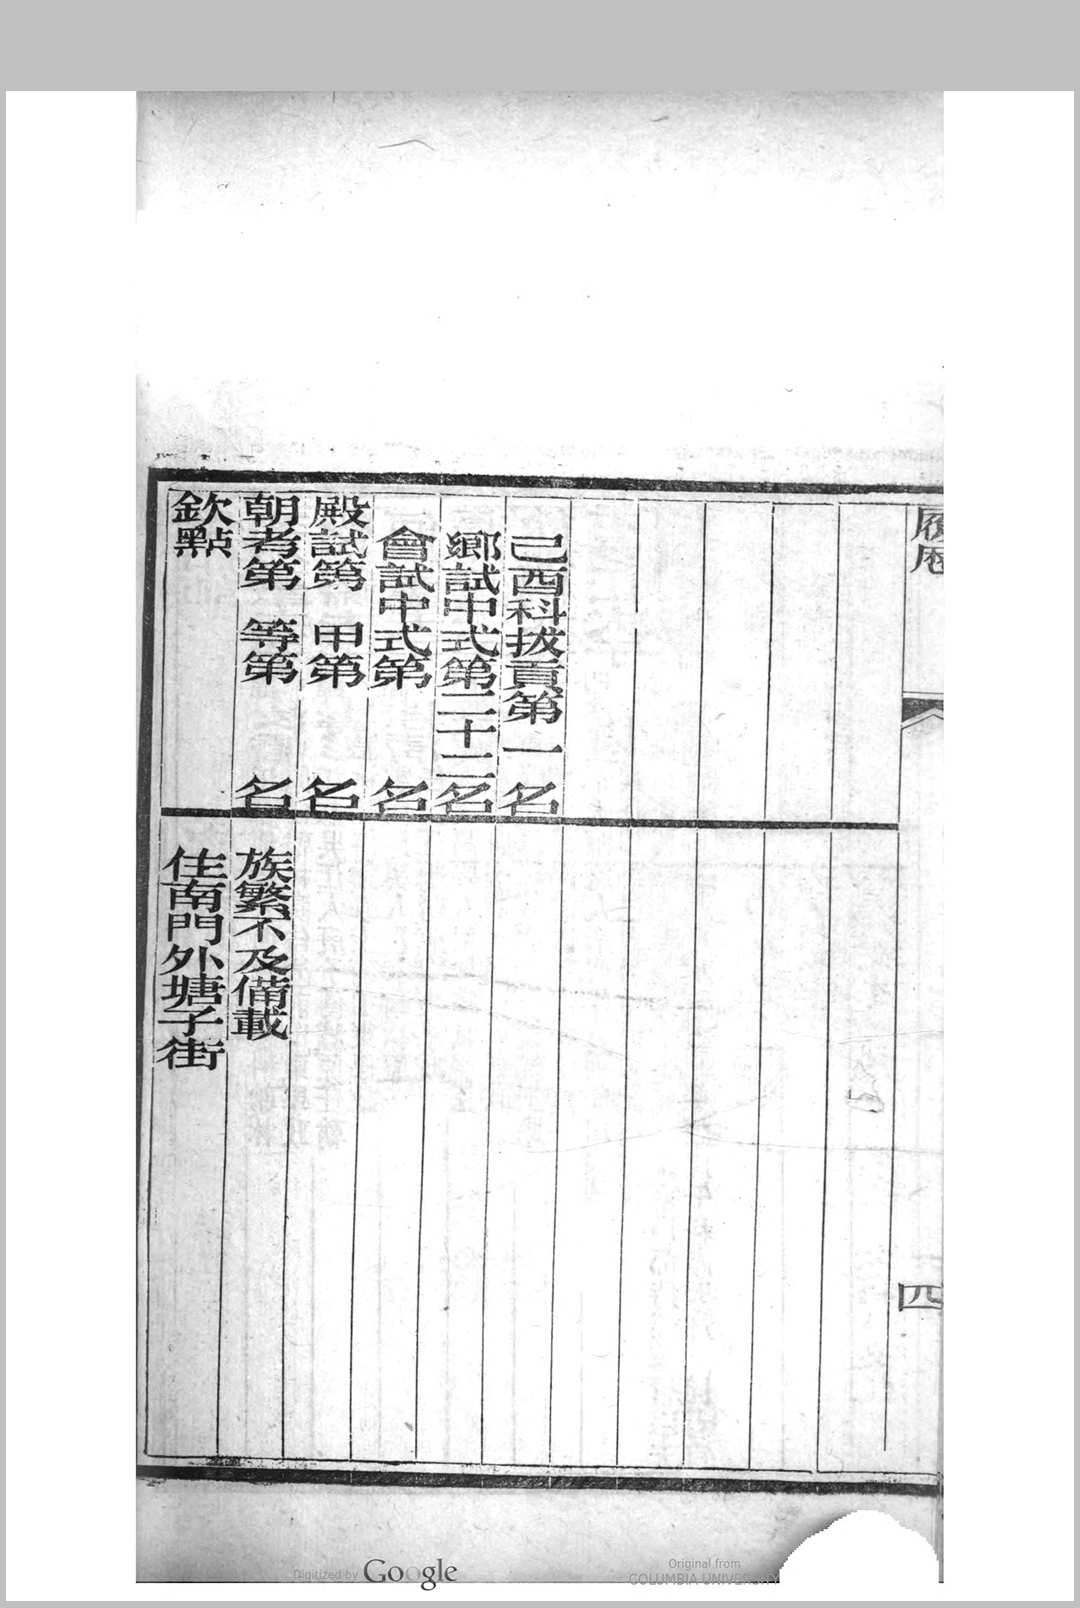 履歷
四
己酉科拔貢第一名
鄉試中式第二十二名
會試中式第　名
殿試第　甲第　名
朝考第　等第　名
欽點
族繁不及備載
住南門外塘子街
Digitized by Google
Original from
COLUMBIA UNIVERSITY